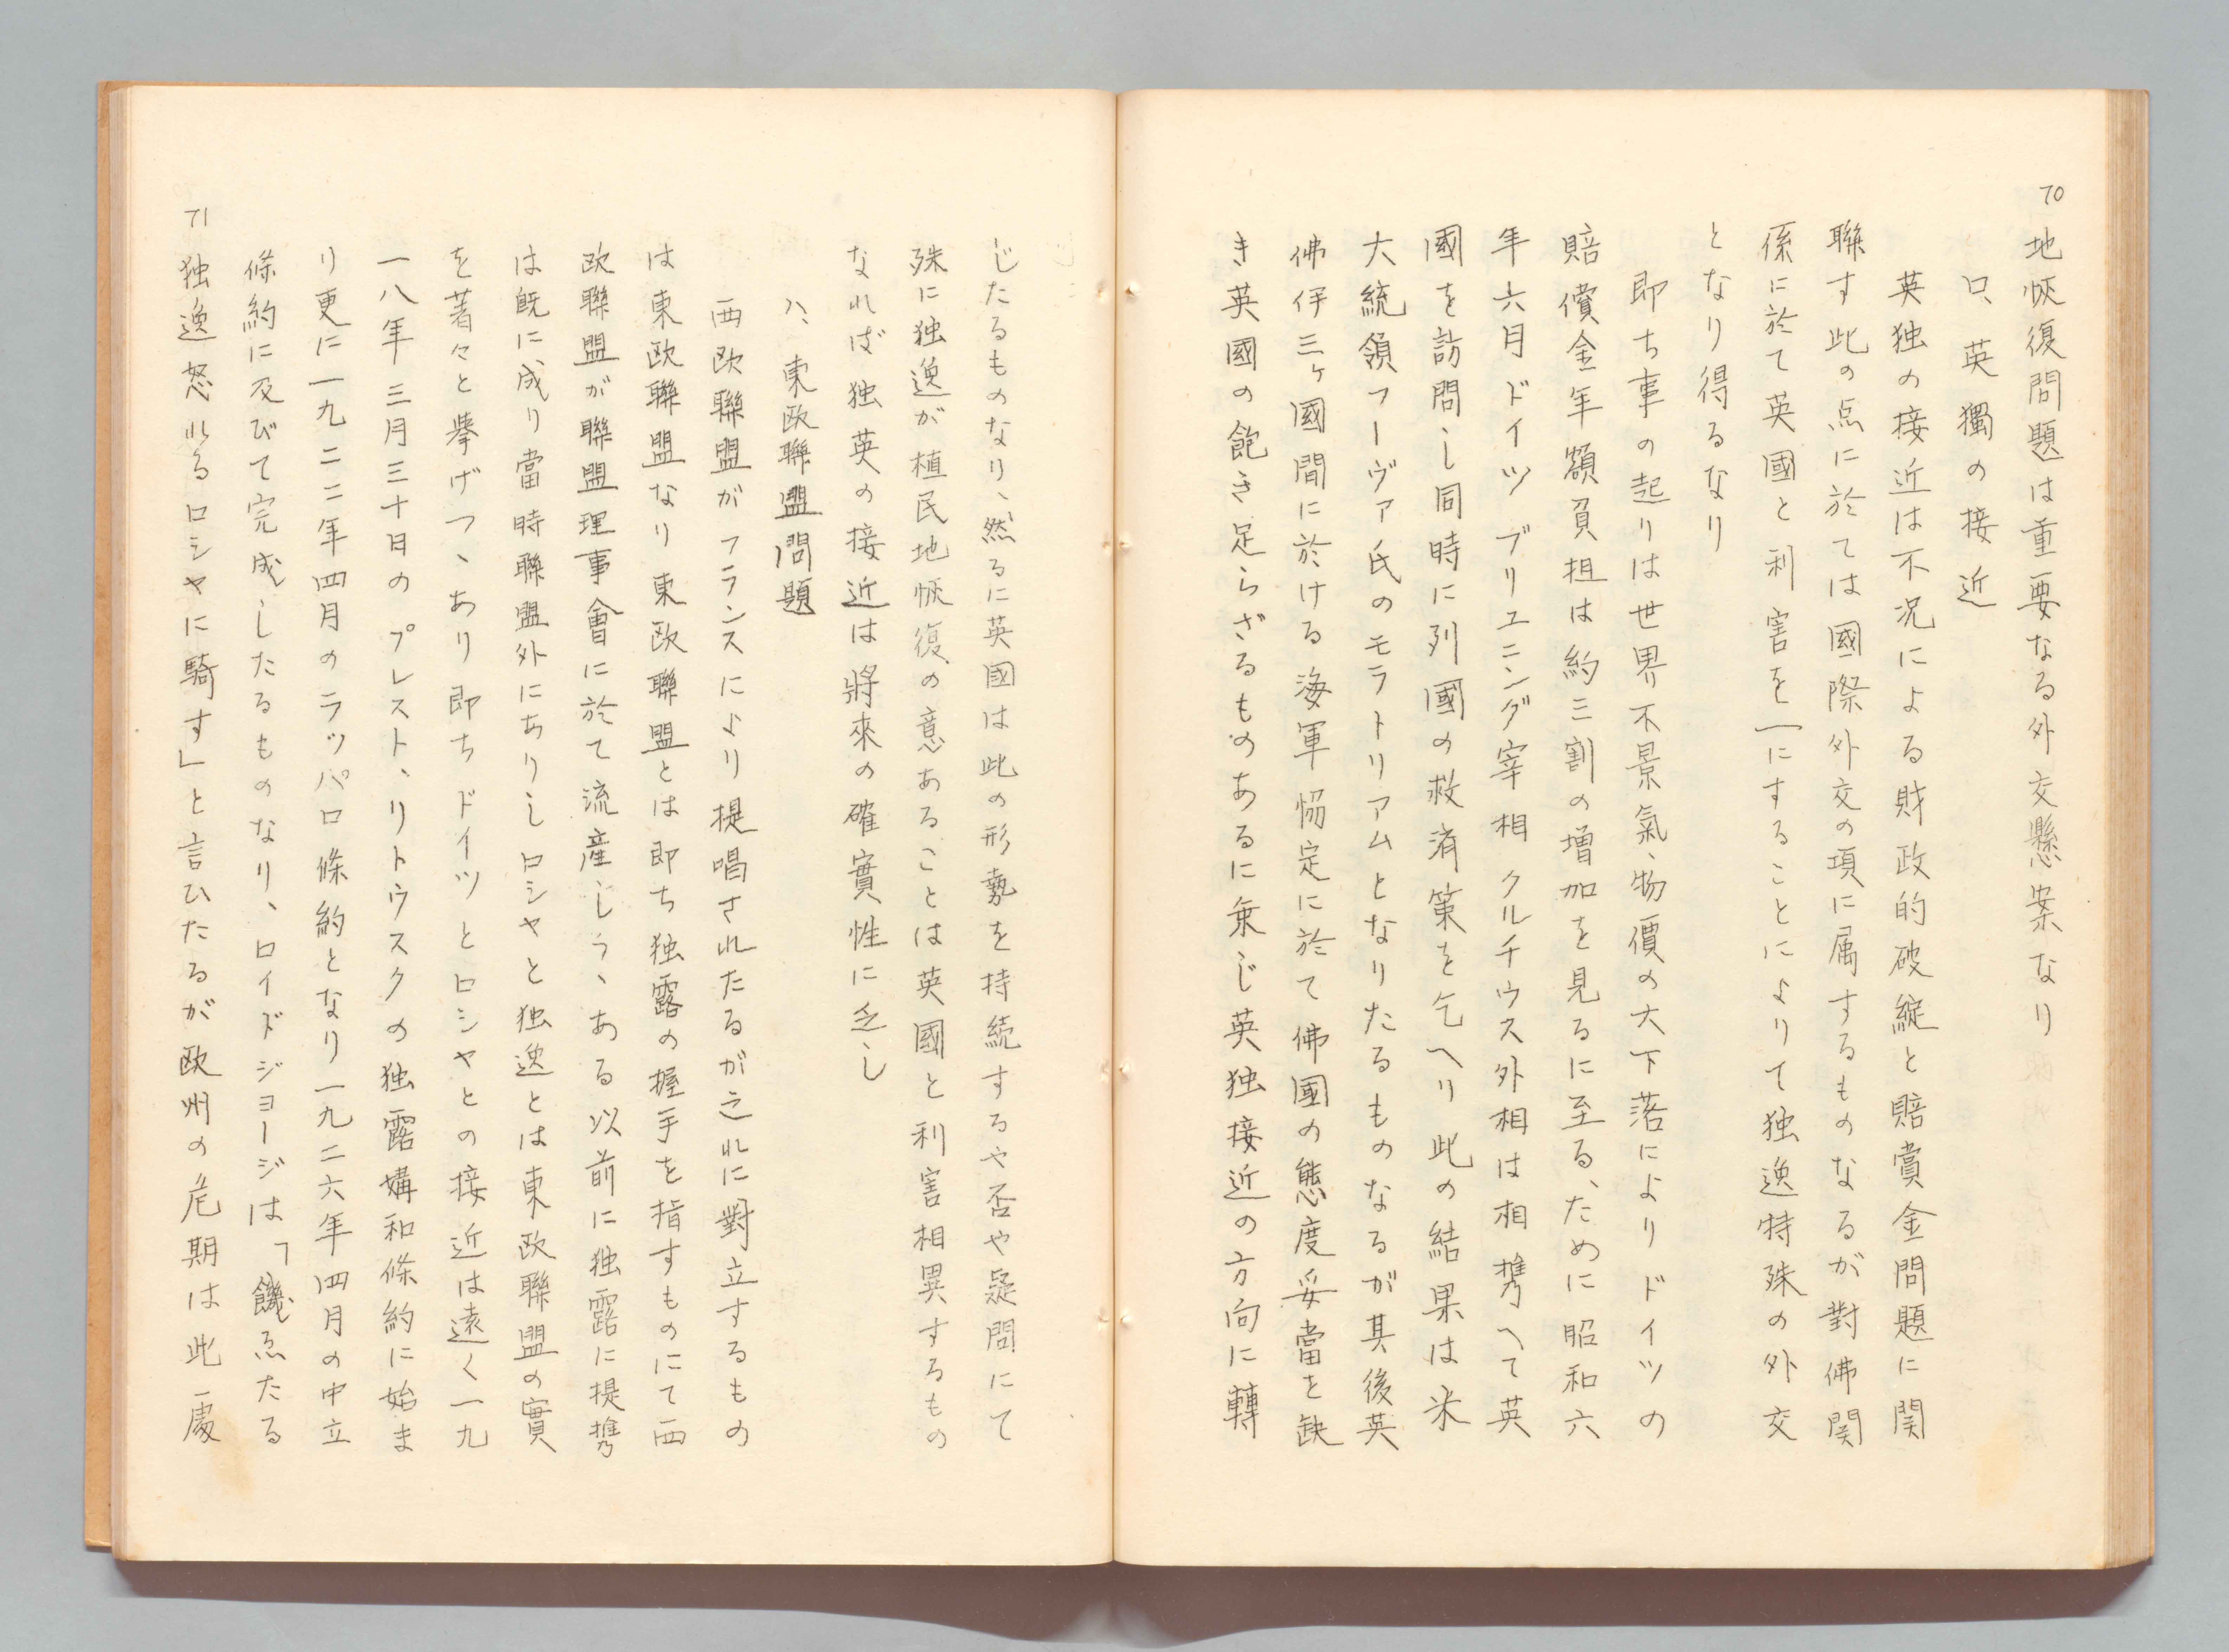 70
地恢復問題は重要なる外交懸案なり
ロ、英獨の接近
英独の接近は不況による財政的破綻と賠賞金問題に関
聯す此の点に於ては國際外交の項に属するものなるが對佛関
係に於て英國と利害を一にすることによりて独逸特殊の外交
となり得るなり
即ち事の起りは世界不景氣、物價の大下落によりドイツの
賠償金年額負担は約三割の増加を見るに至る、ために昭和六
年六月ドイツブリユニング宰相クルチウス外相は相携へて英
國を訪問し同時に列國の救済策を乞へり此の結果は米
大統領フーヴァ氏のモラトリアムとなりたるものなるが其後英
佛伊三ヶ國間に於ける海軍協定に於て佛國の態度妥當を缺
き英國の飽き足らざるものあるに乗じ英独接近の方向に轉
じたるものなり、然るに英國は此の形勢を持続するや否や疑問にて
殊に独逸が植民地恢復の意あることは英國と利害相異するもの
なれば独英の接近は將來の確實性に乏し
ハ、東欧聯盟問題
西欧聯盟がフランスにより提唱されたるが之れに對立するもの
は東欧聯盟なり東欧聯盟とは即ち独露の握手を指すものにて西
欧聯盟が聯盟理事會に於て流産しつゝある以前に独露に提携
は既に成り當時聯盟外にありしロシヤと独逸とは東欧聯盟の實
を著々と擧げつゝあり即ちドイツとロシヤとの接近は遠く一九
一八年三月三十日のプレスト、リトウスクの独露媾和條約に始ま
り更に一九二二年四月のラッパロ條約となり一九二六年四月の中立
條約に及びて完成したるものなり、ロイドジョージは「饑ゑたる
独逸怒れるロシヤに騎す」と言ひたるが欧州の危期は此處
71